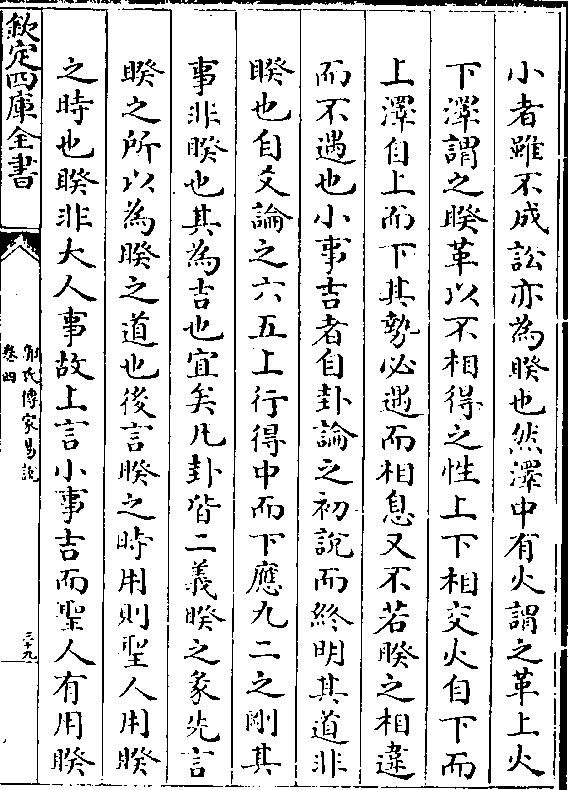 小者雖不成訟亦為睽也然澤中有火謂之革上火
下澤謂之睽革以不相得之性上下相交火自下而
上澤自上而下其勢必遇而相息又不若睽之相違
而不遇也小事吉者自卦論之初說而終明其道非
睽也自爻論之六五上行得中而下應九二之剛其
事非睽也其為吉也宜矣凡卦皆二義睽之彖先言
睽之所以為睽之道也後言睽之時用則聖人用睽
之時也睽非大人事故上言小事吉而聖人有用睽
欽定四庫全書
郭氏傳家易說
卷四
三十九